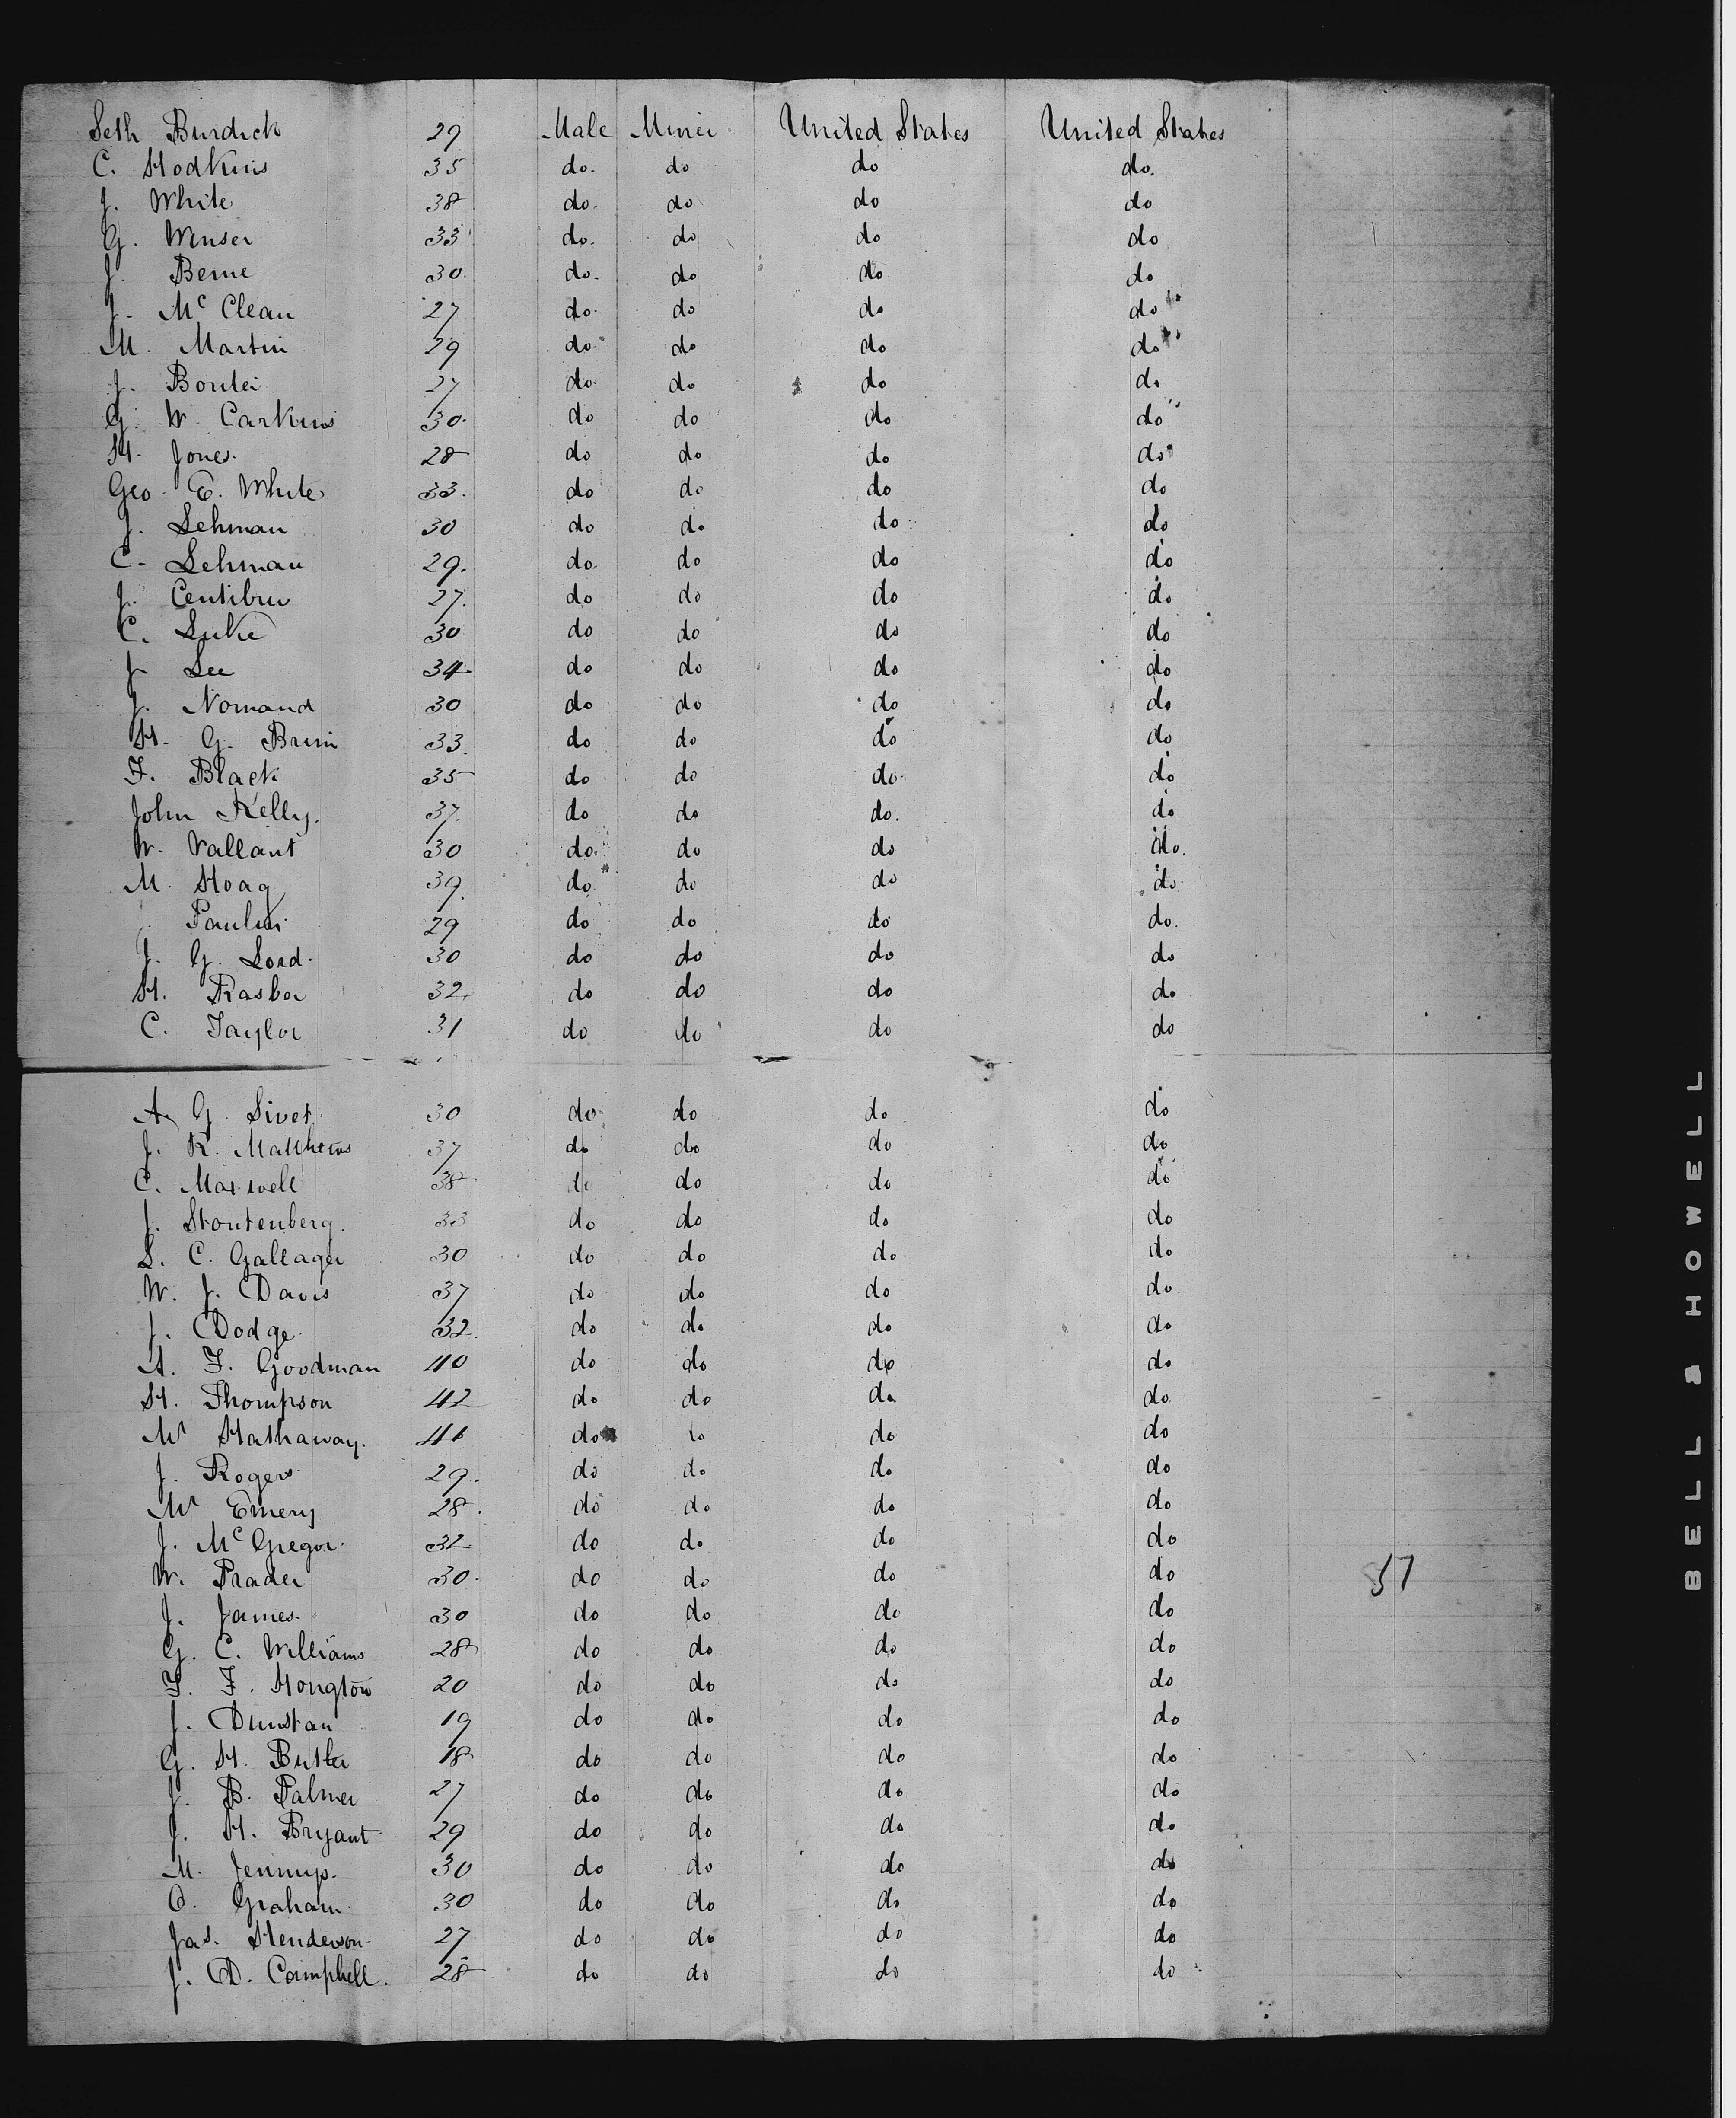 Seth Burdick 29 Male Miner United States United States
C. Hodkins 35 do. do do do.
J. White 38 do. do do do
G. Winser 33 do. do do do
J. Beme 30 do. do do do
J. McClean 27 do. do do do
M. Martin 29 do. do do do
J. Boutei 27 do. do do do
G. W. Carkins 30. do do do do
H. Jones. 28 do do do do
Geo. E. White 33. do do do do
J. Lehman 30 do do do do
C. Lehman 29. do. do do do
J. Centibru 27. do do do do
C. Luke 30 do do do do
J Lee 34 do do do do
J. Nomand 30 do do do do
H. G. Brum 33. do do do do
F. Black 35 do do do. do
John Kelly. 37. do do do. do
W. Vallant 30 do. do do do.
M. Hoag 39. do do do do
Paulin 29 do do do do.
J. G. Lord. 30 do do do do
H. Rasber 32. do do do do
C. Taylor 31 do do do do
A. G. Sivet 30 do do do do
J. R. Matthews 37 do do do do
C. Maxwell 38 do do do do
J. Stoutenberg. 33 do do do do
S. C. Gallager 30 do do do do
W. J. Davis 37 do do do do
J. Dodge. 32. do do do do
A. F. Goodman 40 do do do do
H. Thompson 42 do do do do
Mr Hathaway. do do do
J. Rogers 29. do do do do
Mr Emery 28. do do do do
J. McGregor. 32 do do do do
W. Prader 30. do do do do
J. James. 30 do do do do
G. C. Williams 28 do do do do
F. F. Hongton 20 do do do do
J. Dunstan 19 do do do do
G. H. Butler 18 do do do do
J. B. Palmer 27 do do do do
J. H. Bryant 29 do do do do
M. Jennings. 30 do do do do
O. Graham. 30 do do do do
Jas. Henderson 27 do do do do
J. D. Campbell. 28 do do do do
51
BELL & HOWELL